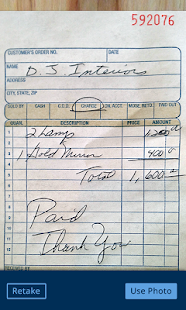 592076
CUSTOMER'S ORDER NO. DATE
NAME D. J. Interiors
ADDRESS
CITY, STATE, ZIP
SOLD BY CASH C.O.D. CHARGE ON ACCT. MDSE. RETD. PAID OUT
QUAN. DESCRIPTION PRICE AMOUNT
1 2 Lamp 1,200
2
3 1 Gold Mirror 400
4 Total 1,600
5
6
7 Paid
8
9 Thank You
10
11
12
RECEIVED BY
Retake Use Photo